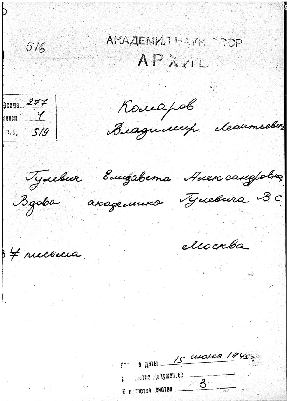 516
АКАДЕМИЯ НАУК СССР
АРХИВ
277
4
519
Комаров
Владимир Леонтьевич
Гулевич Елизавета Александровна
Вдова академика Гулевича В С.
Москва
7 письма.
15 июля
3